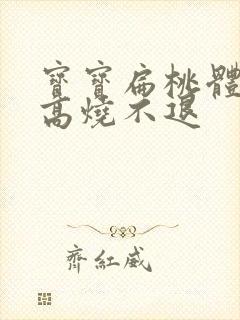 寶寶扁桃體
高燒不退
齊紅威